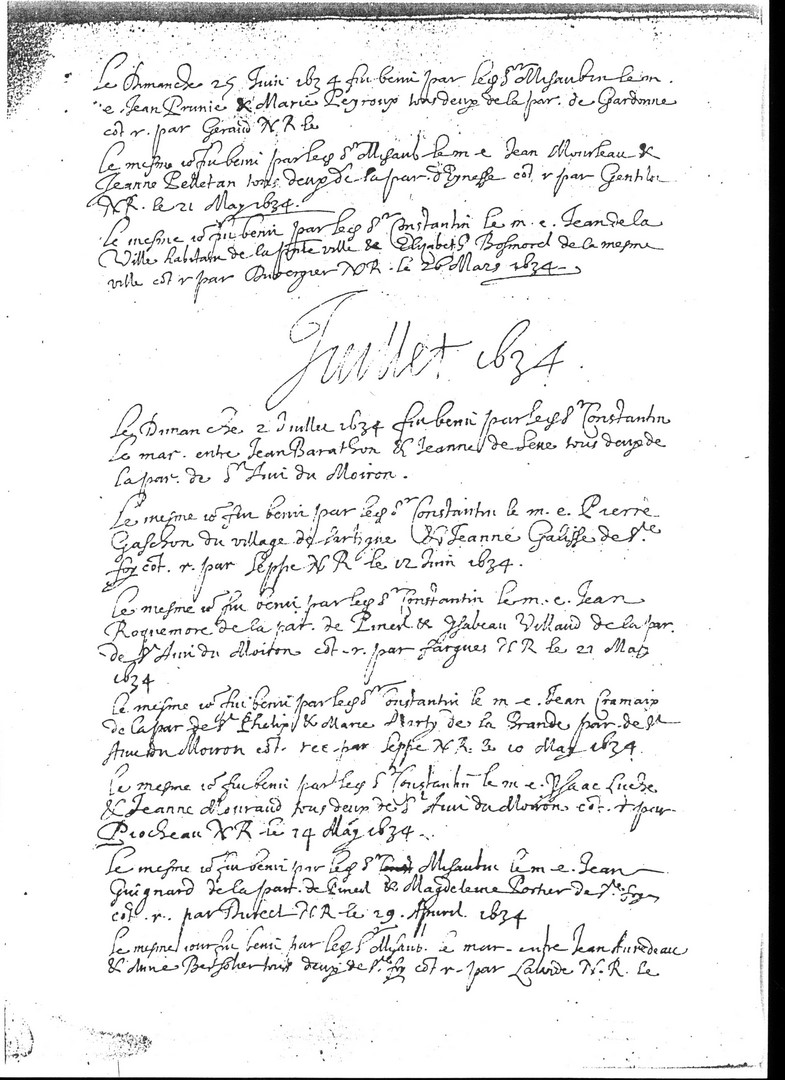 Le Dimanche 25 Juin 1634 fut beni par led Sr Misaubin le m.
e. Jean Prunie & Marie Peyroux tous deux de la par. de Gardonne
cot r. par Geraud N R le
Le mesme io fut beni par led Sr Misaub le m e Jean Mourleau &
Jeanne Pelletan tous deux de la par. d'Eynesse cot r par Gentilot
NR. le 21 May 1634.
Le mesme io fut beni par led Sr Constantin le m. e. Jean de la
Ville habitan de la pnte ville & Elizabeth Bosmorel de la mesme
ville cot r par Duvergier NR. le 26 Mars 1634
Juillet 1634.
Le Dimanche 2 Juillet 1634 fut beni par led Sr Constantin
le mar. entre Jean Barathon & Jeanne de Seue tous deux de
la par. de St Avi du Moiron.
Le mesme io fut beni par led Sr Constantin le m. e. Pierre
Gaschon du village de Lartigue & Jeanne Galisse de Ste
foy cot. r. par Seppe N R le 12 Juin 1634.
Le mesme io fut beni par led Sr Constantin le m. e. Jean
Roquemore de la par. de Pineul & Ysabeau Villaud de la par.
de St Avi du Moiron cot. r. par Fargues N R le 21 May
1634
Le mesme io fut beni par led Sr Constantin le m e. Jean Cramaix
de la par de St Phelix & Marie de la Grande par. de St
Avi du Moiron cot. rec par Seppe N R. 10 May 1634
Le mesme io fut beni par led Sr Constantin le m e. Ysaac
& Jeanne Mouraud tous deux de St Avi du Moiron cot. r par
Piocheau N R le 14 May 1634.
Le mesme io fut beni par led Sr Misaubin le m e. Jean
Guignard de la par. de Pineul & Magdeleine Portier de Ste foy
cot. r. par Durecl N R le 29. Apvril 1634
Le mesme iour fut beni par led Sr Misaub. le mar. entre Jean Auredeau
& Anne Berthomer tous deux de Ste foy cot r. par Lalande N. R. le